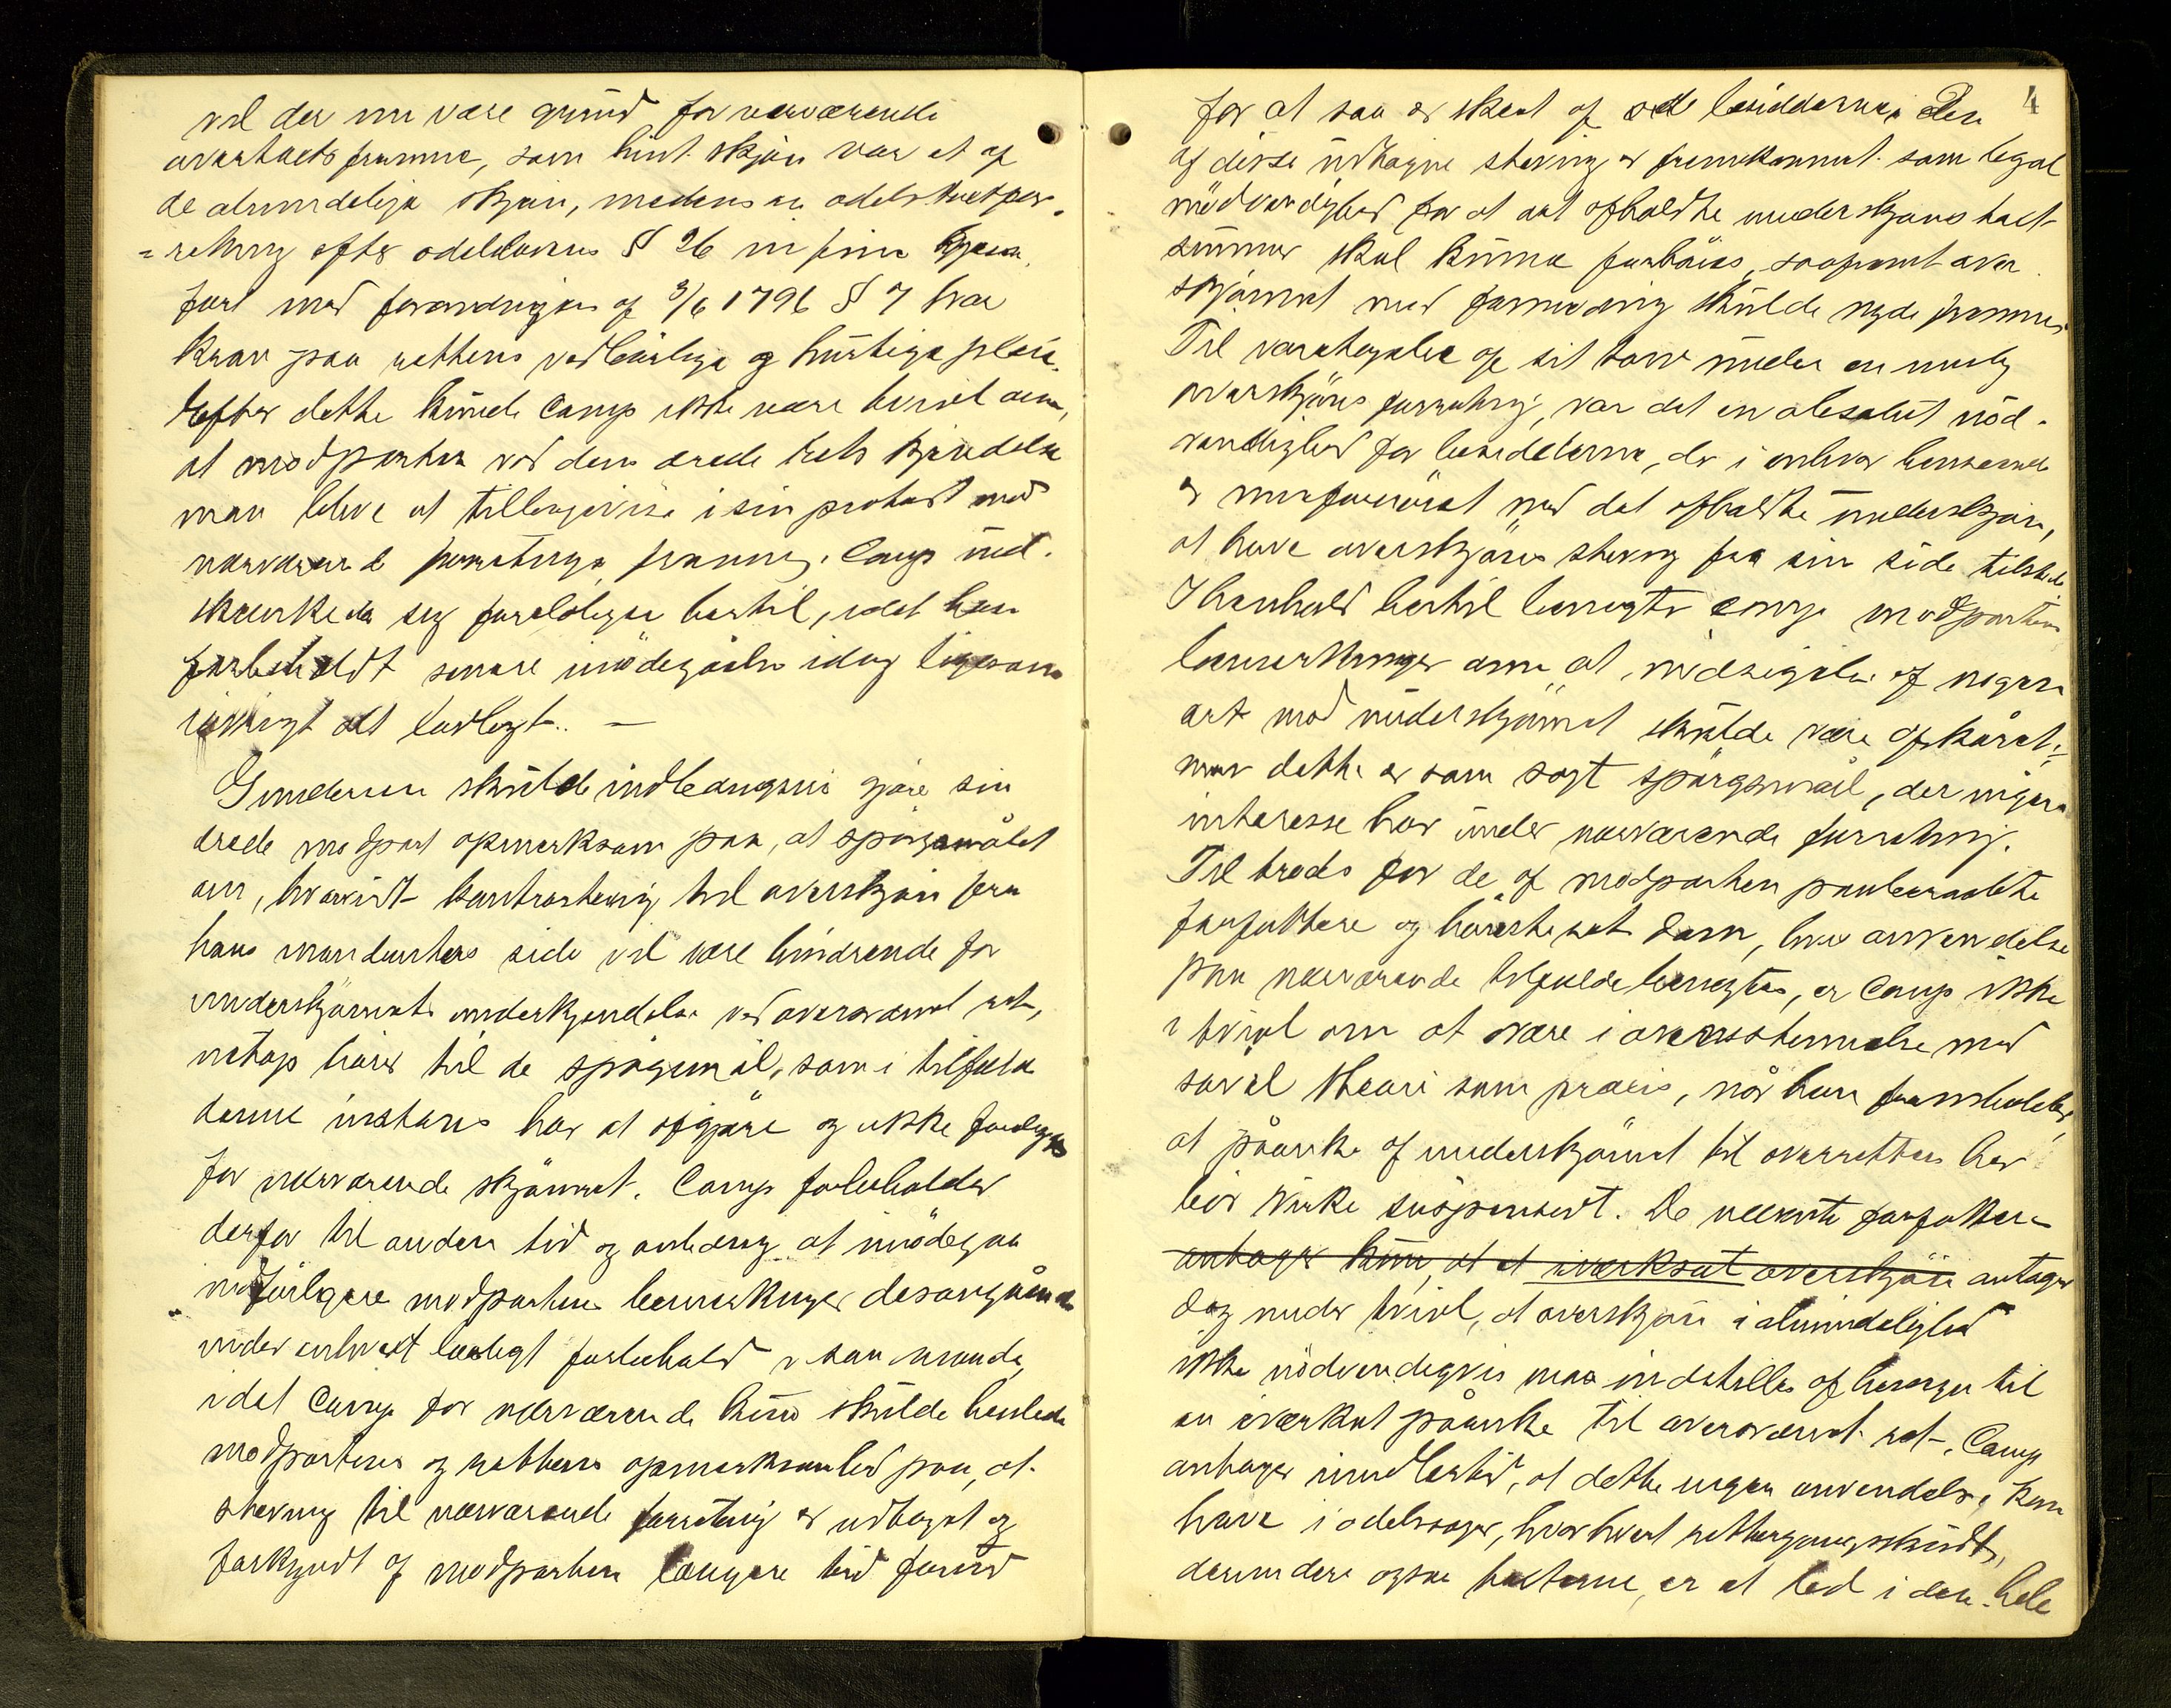 vil der nu være grund for nærværende
overtakts fremme, som hint skjøn var et af
de almindelige skjøn, medens en odelstaktfor-
=retning efter odelslovens § 26 in fine
ført med forordningen af 3/6 1796 § 7 har
krav paa rettens vedbørlige og hurtige pleie.
Efter dette kunde Comp ikke være tvivl om,
at modparten ved den ærede rets kjendelse
man blive at tilbagevise i sin protest mod
nærværende forretnings fremme. Comp ind-
skrænkede sig foreløbigen hertil, idet han
forbeholdt senere imødegåelse idag ligesom
iøvrigt alt lovligt. —
Gundersen skulde indledningsvis gjøre sin
ærede modpart opmerksom paa, at spørgsmålet
om, hvorvidt kontrastevning til overskjøn fra
hans mandanters side vil være hindrende for
underskjønnets underkjendelse ved overordnet ret,
netop hører til de spørgsmål, som i tilfælde
denne instans har at afgjøre og ikke foreligger
for nærværende skjønnet. Comp forbeholder
derfor til anden tid og anledning at imødegaa
modpartens bemerkninger desangående
under enhvert lovligt forbehold i saa maade,
idet Comp for nærværende kun skulde henlede
modpartens og rettens opmerksomhed paa, at
stevning til nærværende forretning er udtaget og
forkyndt af modparten længere tid forud
4
for at saa er skeet af besidderne. Den
af disse udtagne stevning er fremkommet som legal
nødvendighed for at det afholdte underskjøns takt-
summer skal kunne forhøies, saafremt over-
skjønnet med formening skulde nyde fremme.
Til varetagelse af sit tarv under en mulig
overskjøns forretning, var det en absolut nød-
vendighed for besidderne, der i enhver henseende
er misfornøiet med det afholdte underskjøn,
at have overskjøns stevning fra sin side tilstede.
I henhold hertil benegter comp modpartens
bemerkninger om at indsigelse af nogen
art mod underskjønnet skulde være afskåret;
men dette er som sagt spørgsmål, der ingen
interesse har under nærværende forretning.
Til trods for de af modparten paaberaabte
forfattere og høiesteret dom, hvis anvendelse
paa nærværende tilfælde benegtes, er Comp ikke
i tvivl om at være i overensstemmelse med
såvel theori som praxis, når han fremholder,
at påanke af underskjønnet til overretten her
bør virke suspensivt. De nævnte forfattere
antager kun, at et iverksat overskjøn antager
dog uden tvivl, at overskjøn i almindelighed
ikke nødvendigvis maa indstilles af hensyn til
en iverksat påanke til overordnet ret. Comp
antager imidlertid, at dette ingen anvendelse kan
have i odelssager, hvor hvert rettergangsskridt,
derunder ogsaa takterne, er et led i den hele